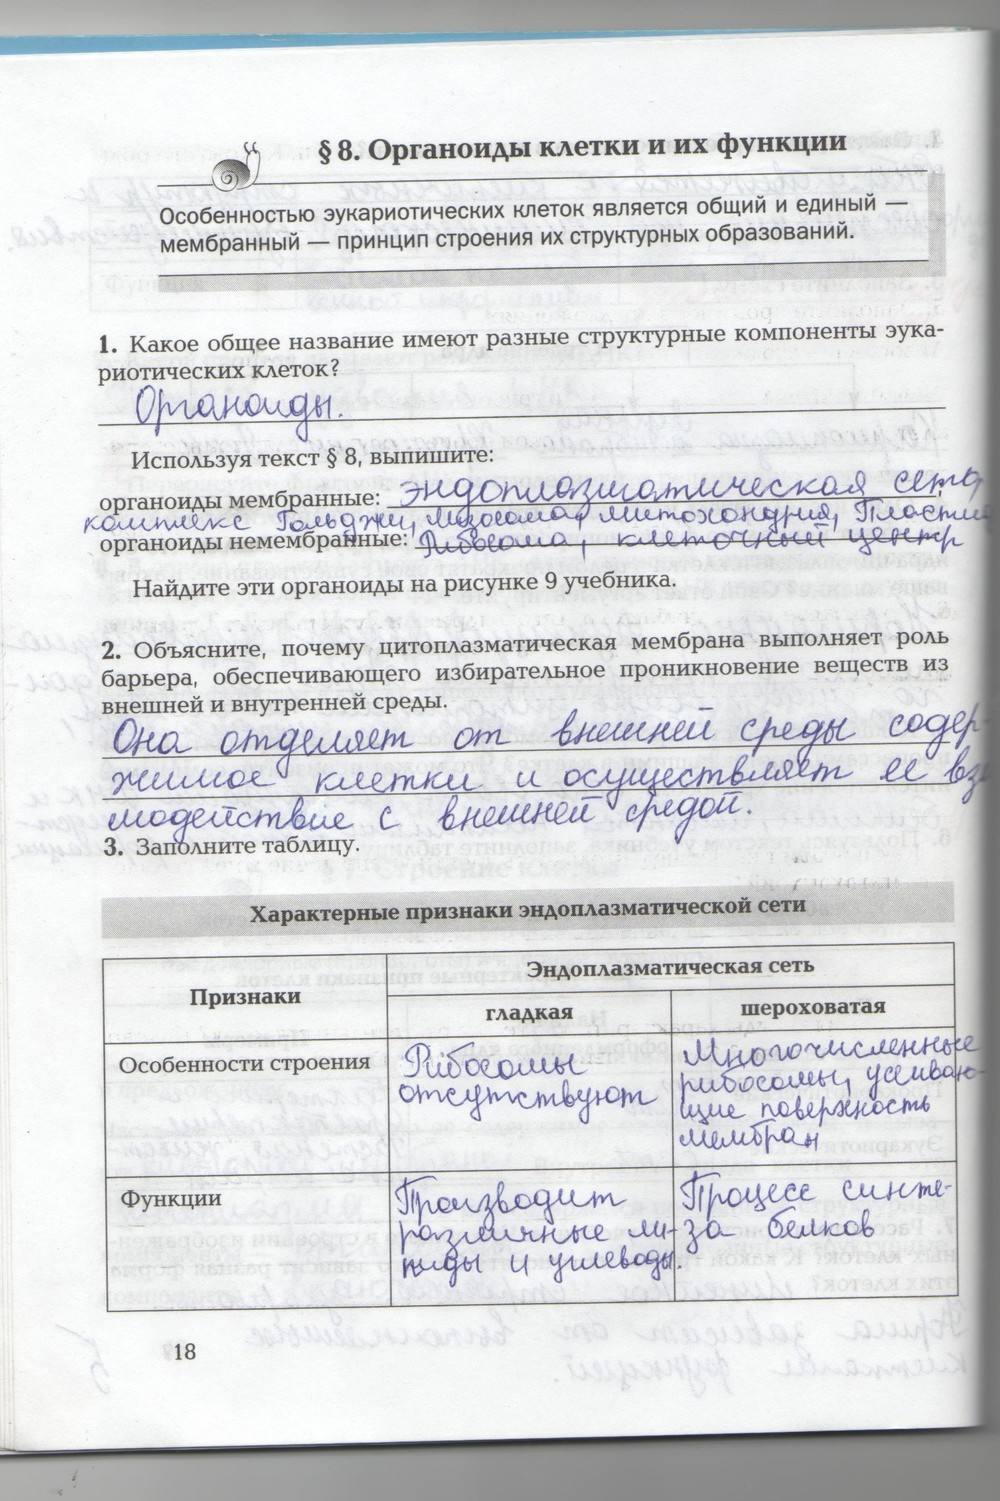 § 8. Органоиды клетки и их функции
Особенностью эукариотических клеток является общий и единый —
мембранный — принцип строения их структурных образований.
1. Какое общее название имеют разные структурные компоненты эука-
риотических клеток?
Органоиды.
Используя текст § 8, выпишите:
органоиды мембранные: эндоплазматическая сеть,
комплекс Гольджи, лизосома, митохондрия,
органоиды немембранные: Рибосома, клеточный центр
Найдите эти органоиды на рисунке 9 учебника.
2. Объясните, почему цитоплазматическая мембрана выполняет роль
барьера, обеспечивающего избирательное проникновение веществ из
внешней и внутренней среды.
Она отделяет от внешней среды содер-
жимое клетки и осуществляет ее вза
модействие с внешней средой.
3. Заполните таблицу.
Характерные признаки эндоплазматической сети
Признаки
Эндоплазматическая сеть
гладкая
шероховатая
Особенности строения
Рибосомы
отсутствуют
Многочисленные
рибосомы, усеиваю-
щие поверхность
мембран
Функции
Производит
различные ли-
пиды и углеводы.
Процесс синте-
за белков
18